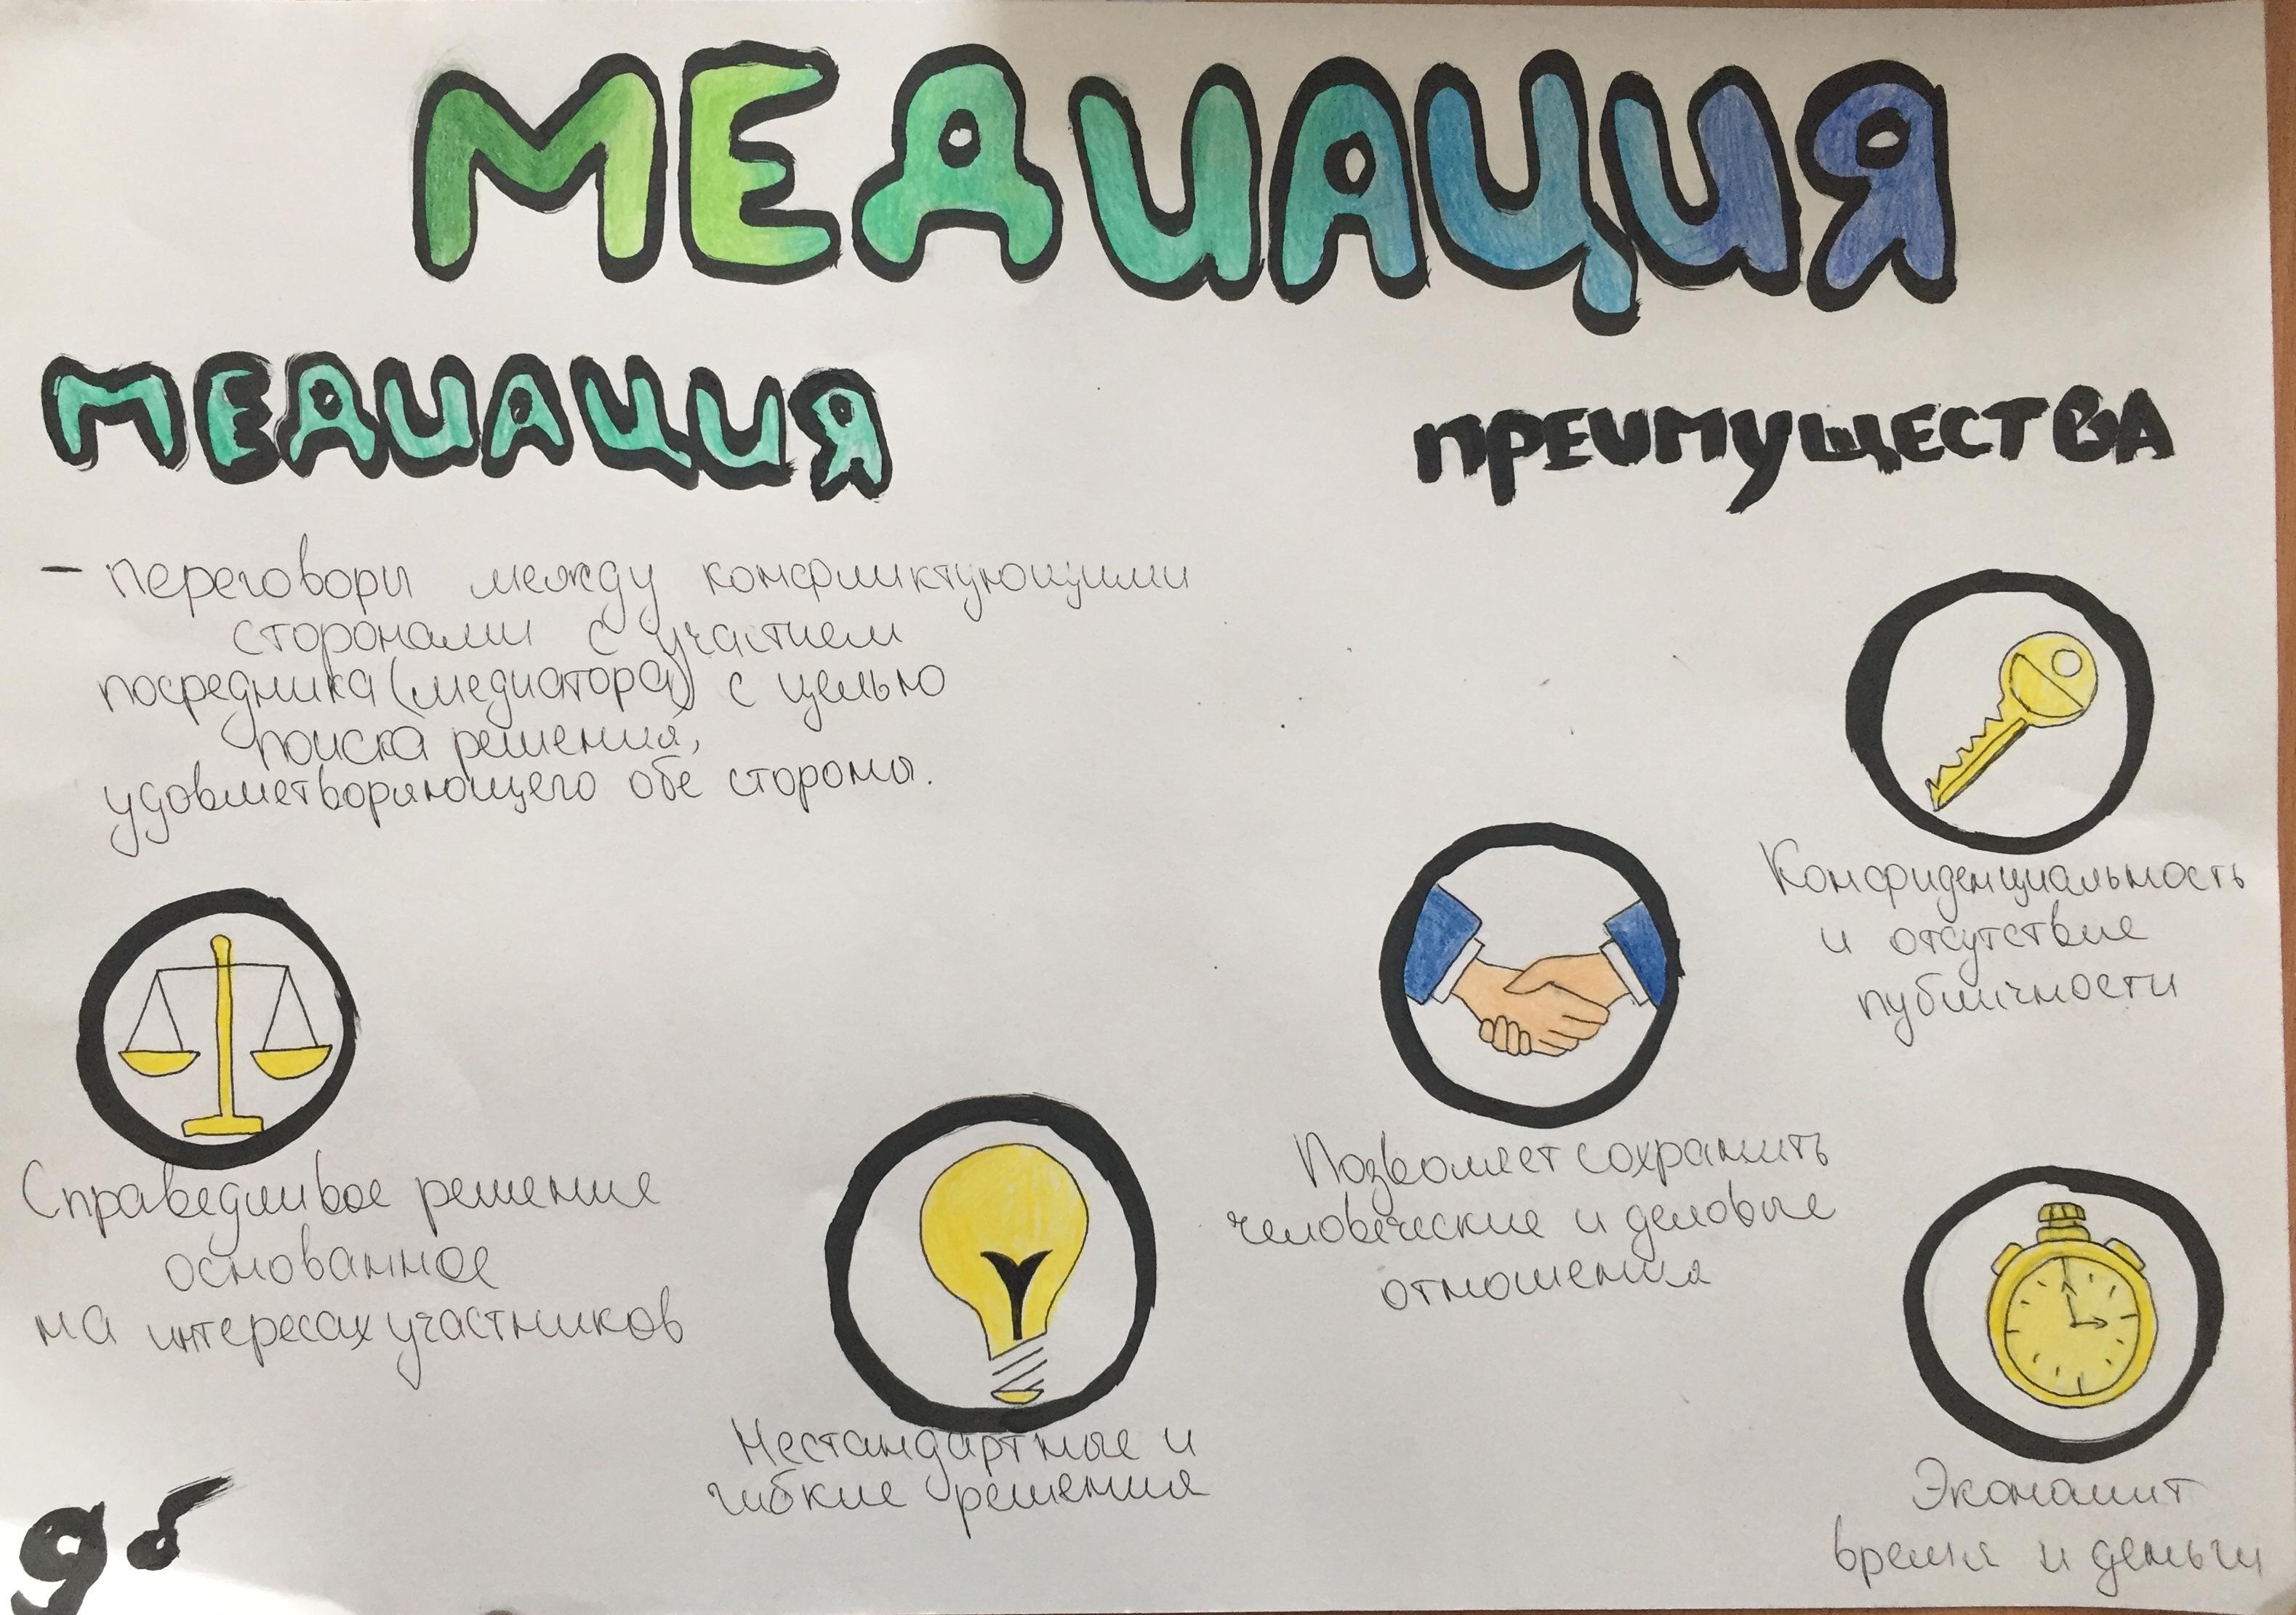 МЕДИАЦИЯ
МЕДИАЦИЯ
– переговоры между конфликтующими
сторонами с участием
посредника (медиатора) с целью
поиска решения,
удовлетворяющего обе стороны.
Справедливое решение
основанное
на интересах участников
Нестандартные и
гибкие решения
ПРЕИМУЩЕСТВА
Конфиденциальность
и отсутствие
публичности
Позволяет сохранить
человеческие и деловые
отношения
Экономит
время и деньги
9б